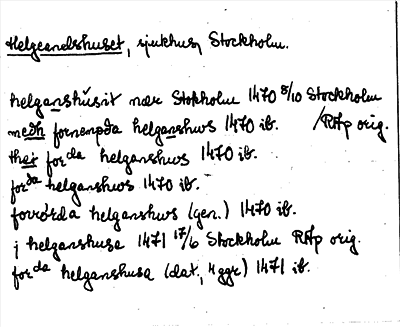 Helgeandshuset, sjukhus, Stockholm.
helganshusit nær Stokholm 1470 8/10 Stockholm
medh fornempda helganshws 1470 ib. /RAp orig.
thei forda helganshws 1470 ib.
forda helganshws 1470 ib.
forørda helganshws (gen.) 1470 ib.
j helganshusa 1471 17/6 Stockholm RAp orig.
forda helganshusa (dat., 4 ggr) 1471 ib.